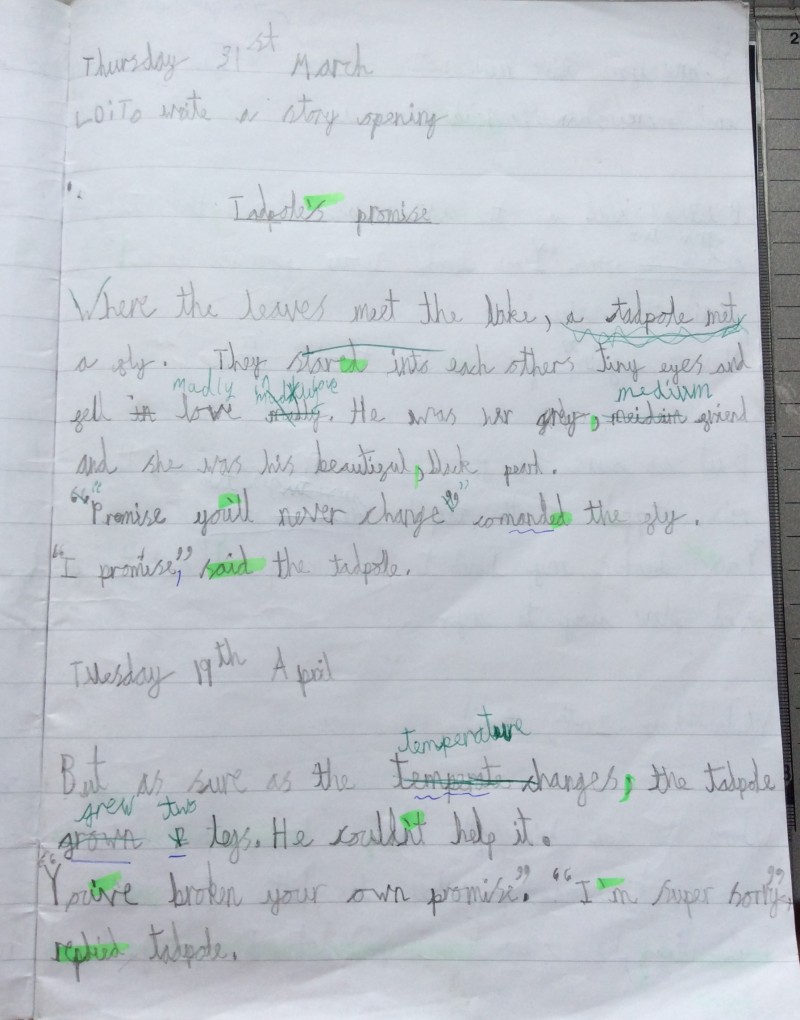 Thursday 31st March
LO: To write a story opening
Tadpole's promise
Where the leaves meet the lake, a tadpole met
a fly. They stared into each others tiny eyes and
madly in love medium
fell in love madly. He was her grey, meidium friend
and she was his beautiful, black pearl.
"Promise you'll never change" comanded the fly.
"I promise," said the tadpole.
Tuesday 19th April
temperature
But as sure as the temparate changes, the tadpole
grew two
grown legs. He couldn't help it.
"You've broken your own promise". "I'm super sorry",
replied tadpole.